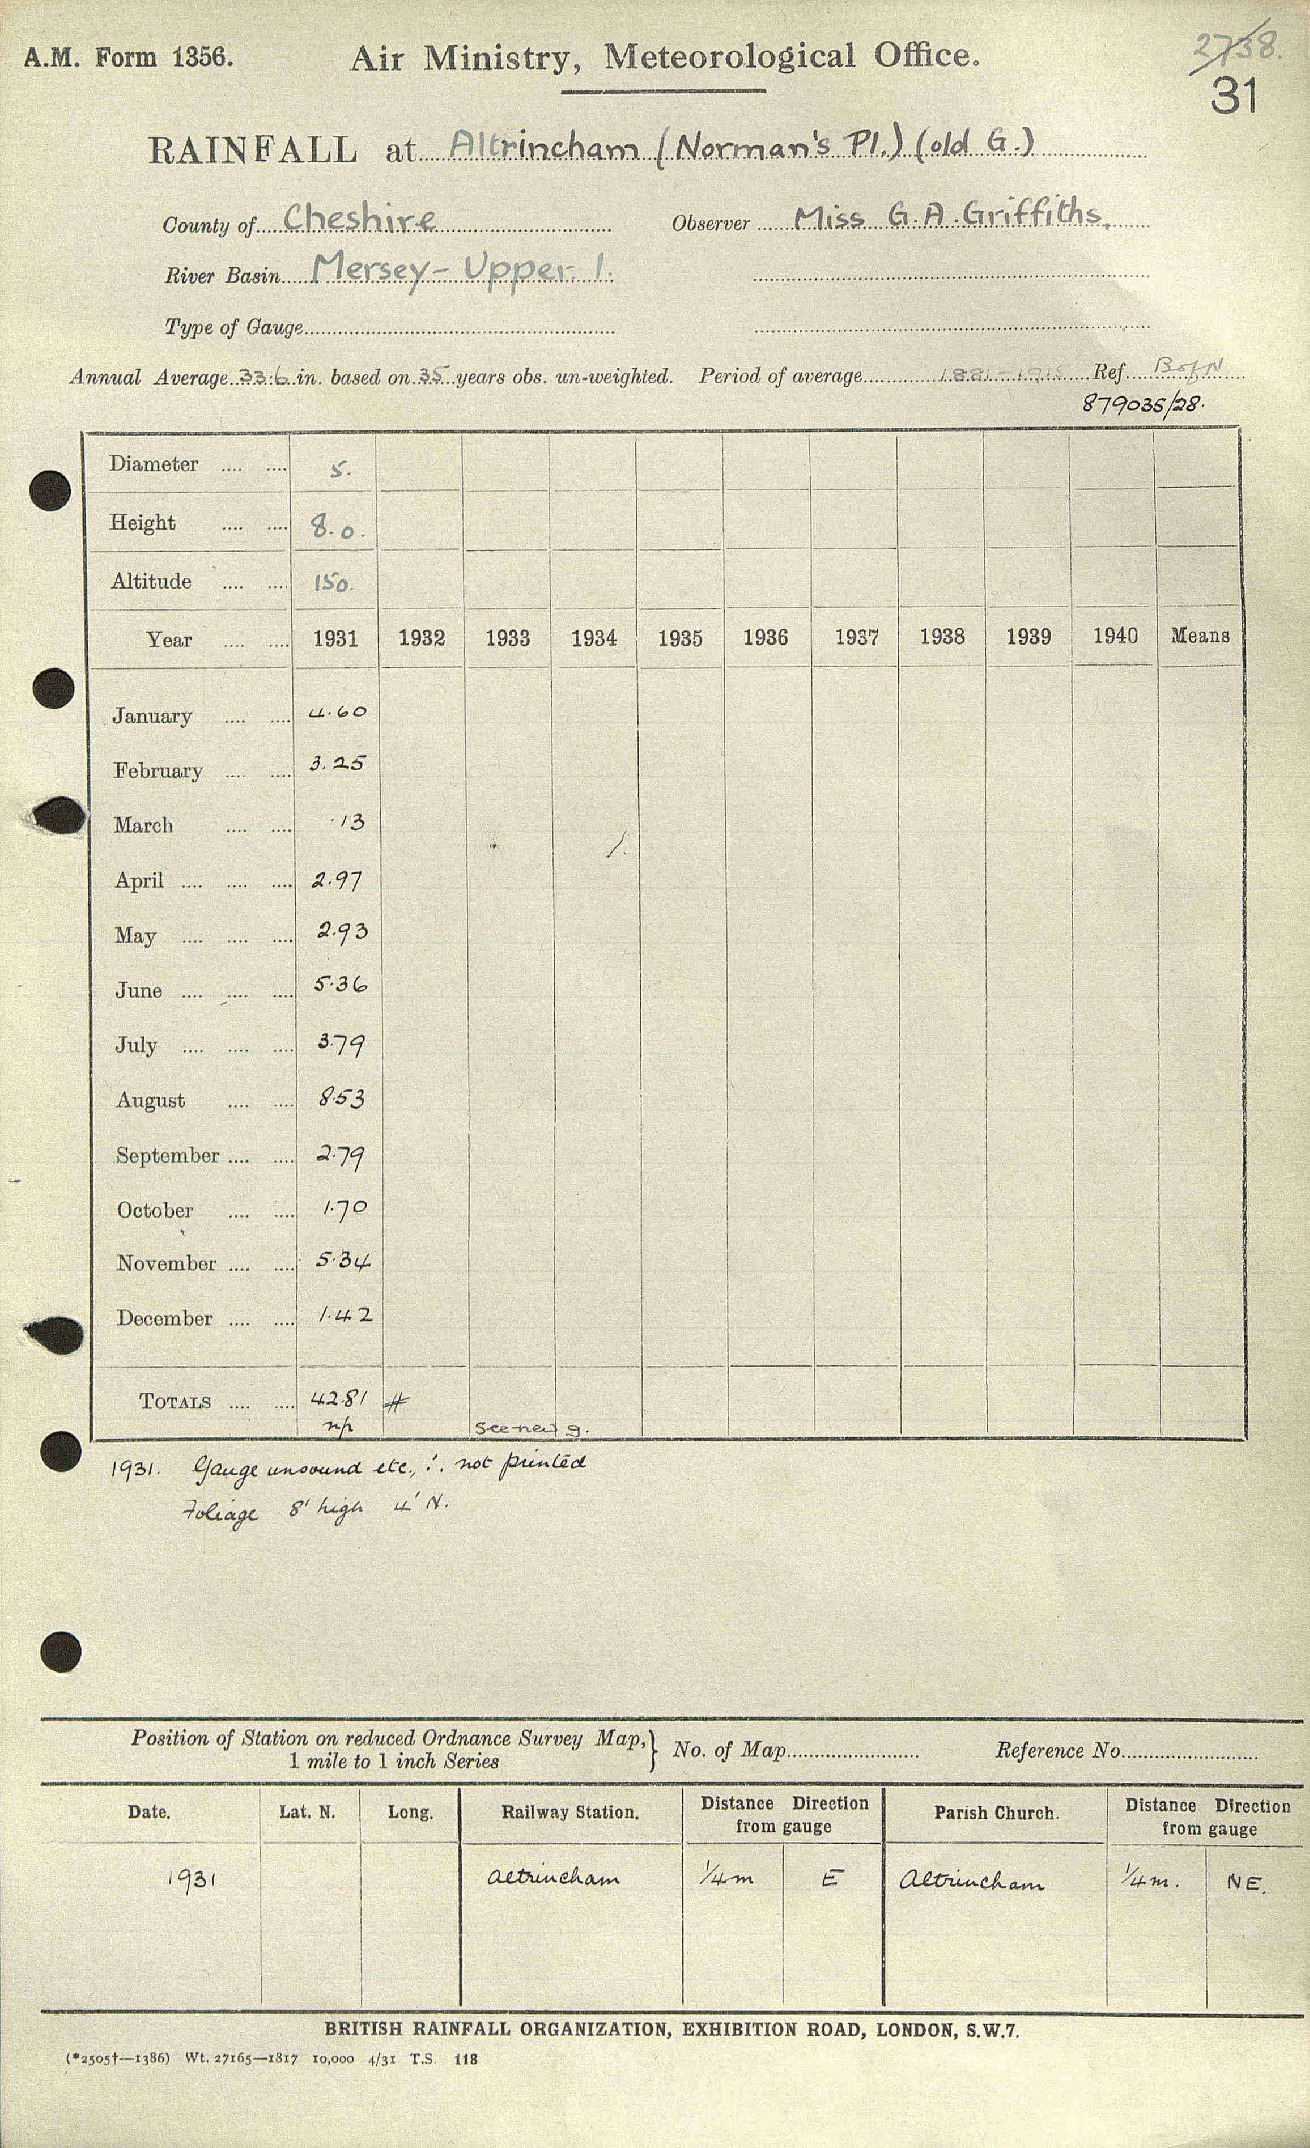 A.M. Form 1356. Air Ministry, Meteorological Office. 2738.
31
RAINFALL at Altrincham (Norman's Pl.) (old G.)
County of Cheshire Observer Miss G.A. Griffiths.
River Basin Mersey- Upper 1.
Type of Gauge
Annual Average 33.6 in. based on 35 years obs. un-weighted. Period of average 1881-1915 Ref.
879035/28.
Diameter .... .... 5.
Height .... .... 8.0.
Altitude .... .... 150.
Year .... .... 1931 1932 1933 1934 1935 1936 1937 1938 1939 1940 Means
January .... .... 4.60
February .... .... 3.25
March .... .... .13
April .... .... .... 2.97
May .... .... .... 2.93
June .... .... .... 5.36
July .... .... .... 3.79
August .... .... 8.53
September .... .... 2.79
October .... .... 1.70
November .... .... 5.34
December .... .... 1.42
TOTALS .... .... 42.81 #
np see new g.
1931. Gauge unsound etc., ∴ not printed
Foliage 8' high 4' N.
Position of Station on reduced Ordnance Survey Map,} No. of Map Reference No.
1 mile to 1 inch Series
Date. Lat. N. Long. Railway Station. Distance Direction from gauge Parish Church. Distance Direction from gauge
1931 Altrincham 1/4 m E Altrincham 1/4 m. NE.
BRITISH RAINFALL ORGANIZATION, EXHIBITION ROAD, LONDON, S.W.7.
(*2505†—1386) Wt. 27165—1817 10,000 4/31 T.S. 118